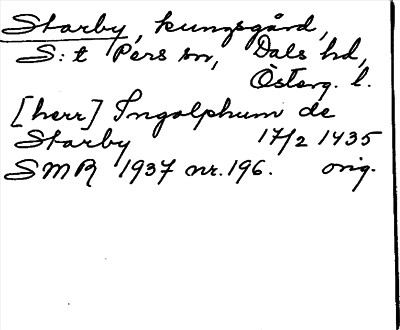 Starby, kungsgård,
S:t Pers sn, Dals hd,
Österg. l.
[herr] Ingolphum de
Starby 17/2 1435
SMR 1937 nr. 196. orig.